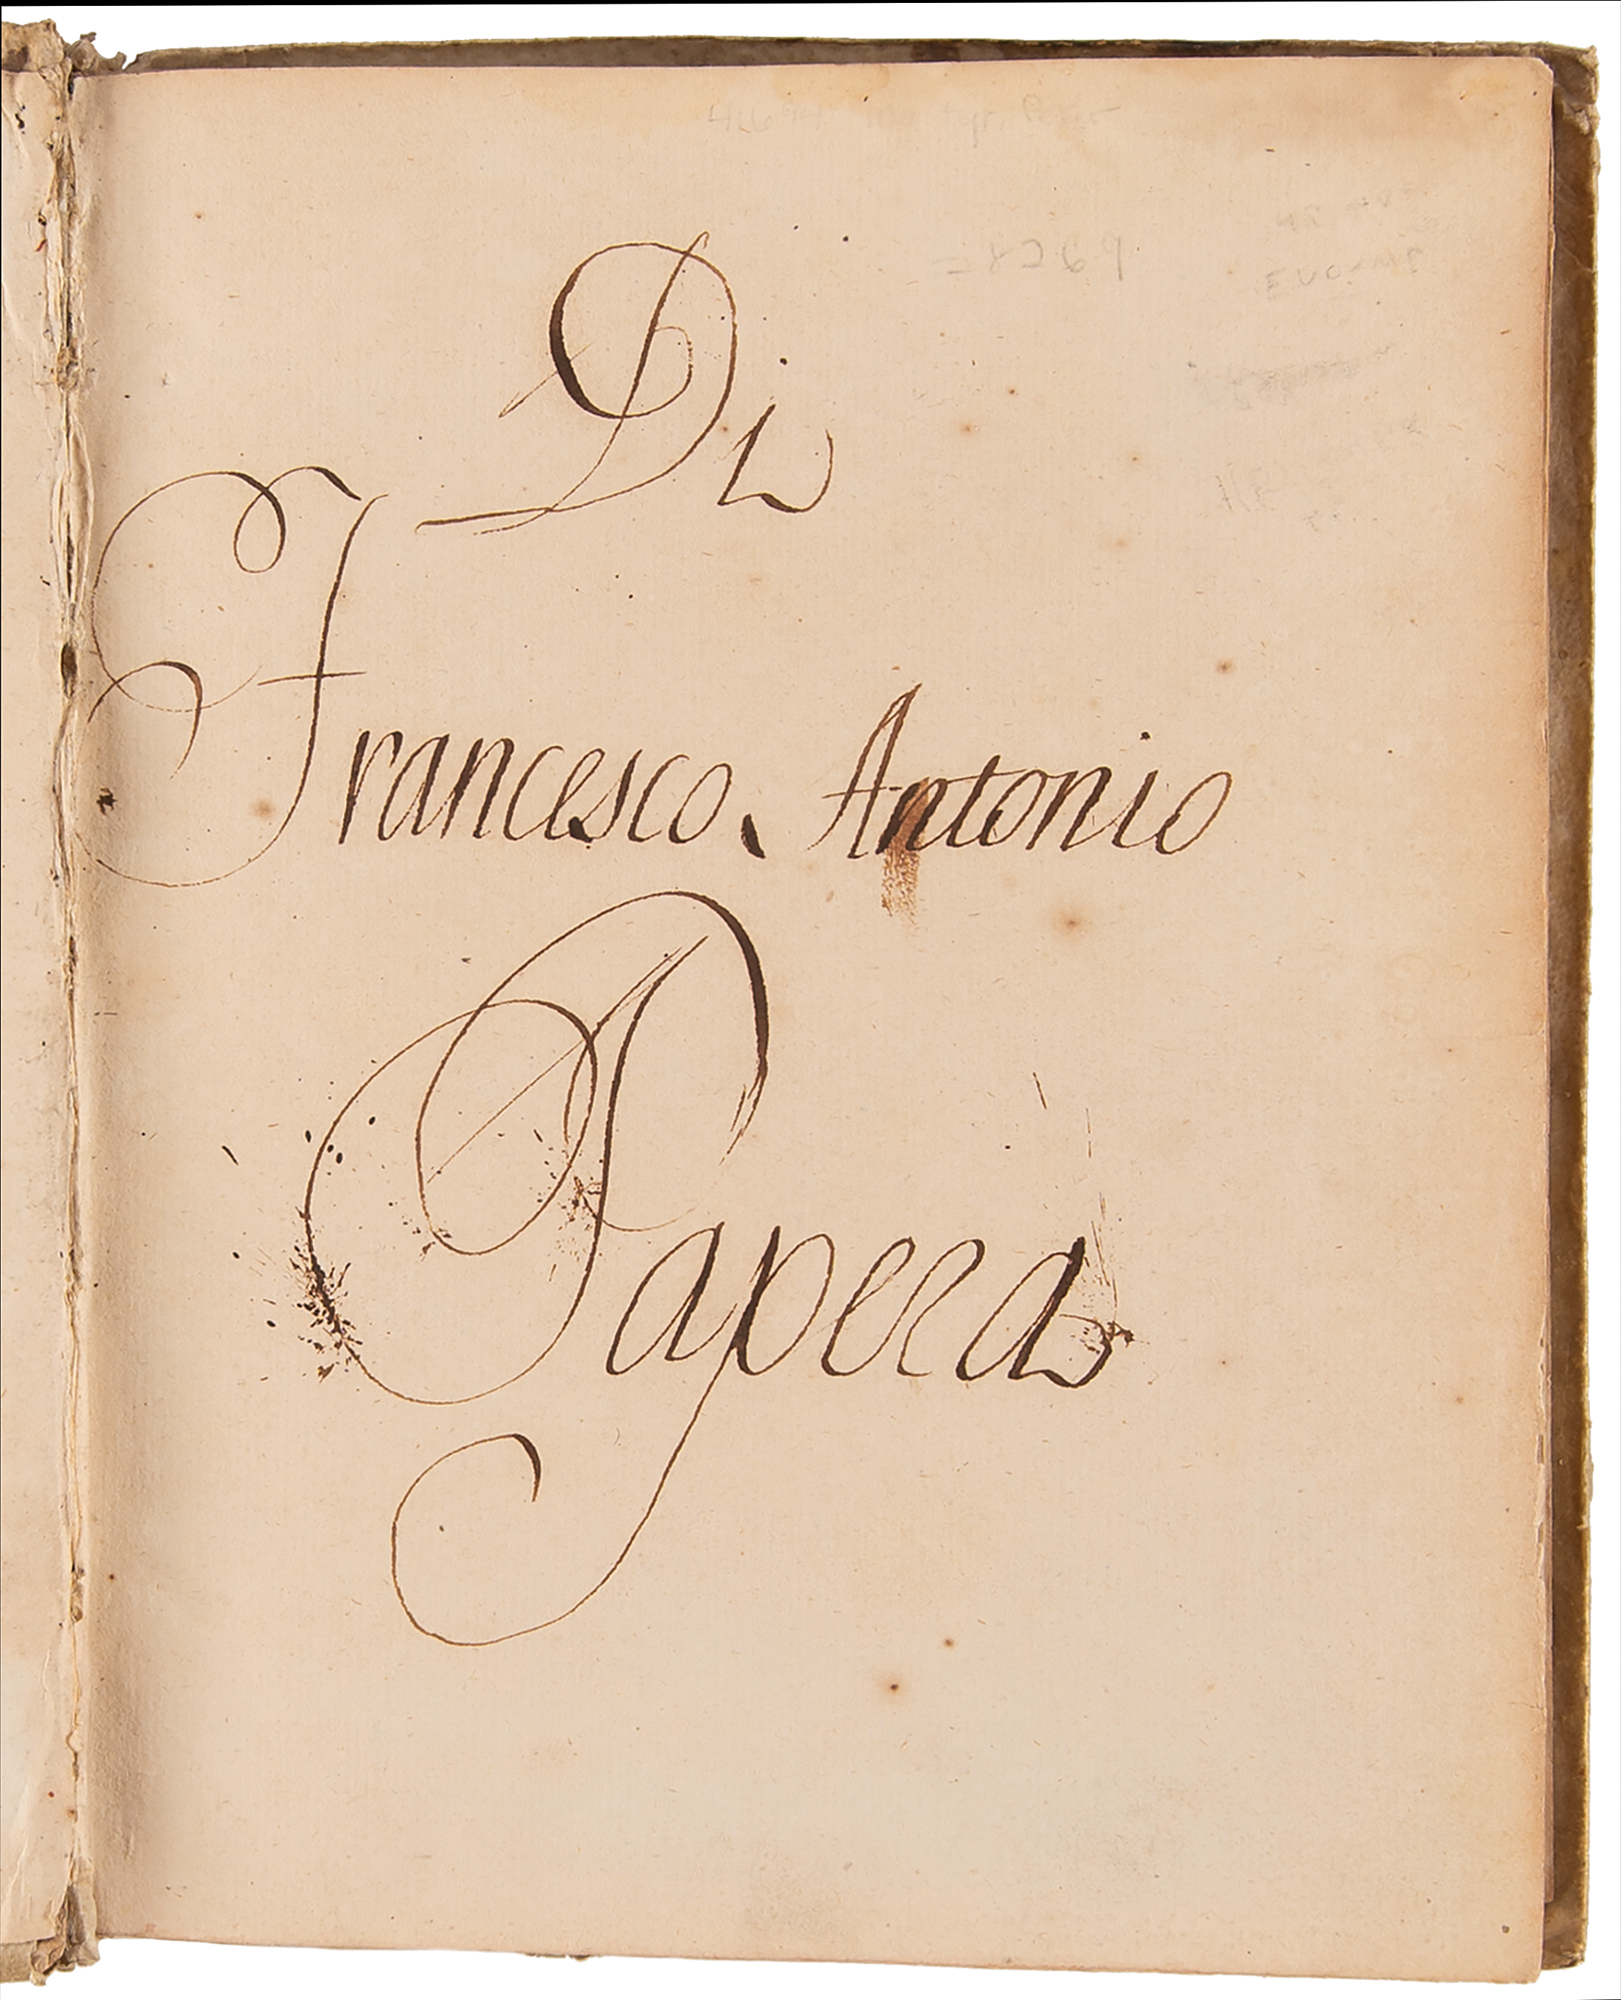 Di
Francesco Antonio
Papera